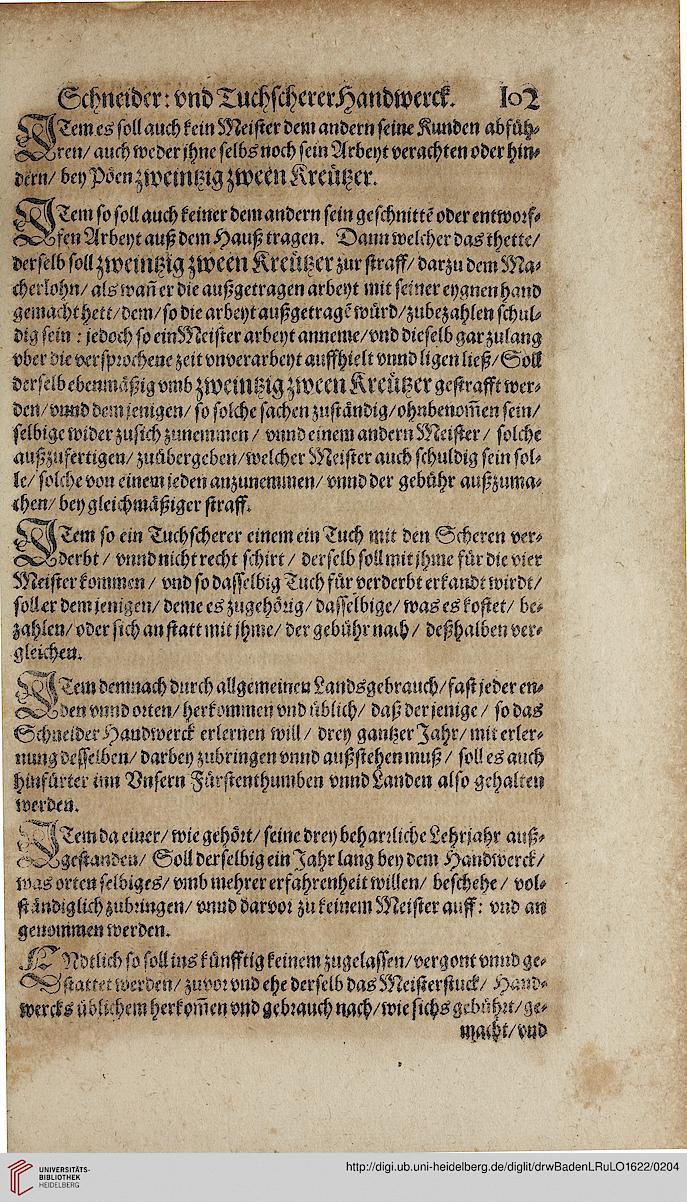 Schneider: vnd Tuchscherer Handwerck. 102
ITem es soll auch kein Meister dem andern seine Kunden abfüh⸗
ren/ auch weder jhne selbs noch sein Arbeyt verachten oder hin⸗
dern/ bey Pöen zweintzig zween Kreützer.
ITem so soll auch keiner dem andern sein geschnittē oder entworf⸗
fen Arbeyt auß dem Hauß tragen. Dann welcher das thette/
derselb soll zweintzig zween Kreützer zur straff/ darzu dem Ma⸗
cherlohn/ als wañ er die außgetragen arbeyt mit seiner eygnen hand
gemacht hett/ dem/ so die arbeyt außgetragē würd/ zubezahlen schul⸗
dig sein : jedoch so ein Meister arbeyt anneme/ vnd dieselb gar zulang
vber die versprochene zeit vnverarbeyt auffhielt vnnd ligen ließ/ Soll
derselb ebenmäßig vmb zweintzig zween Kreützer gestrafft wer⸗
den/ vnnd dem jenigen/ so solche sachen zuständig/ ohnbenom̃en sein/
selbige wider zusich zunemmen / vnnd einem andern Meister / solche
außzufertigen/ zuübergeben/ welcher Meister auch schuldig sein sol⸗
le/ solche von einem jeden anzunemmen/ vnnd der gebühr außzuma⸗
chen/ bey gleichmäßiger straff.
ITem so ein Tuchscherer einem ein Tuch mit den Scheren ver⸗
derbt / vnnd nicht recht schirt / derselb soll mit jhme für die vier
Meister kommen / vnd so dasselbig Tuch für verderbt erkandt wirdt/
soll er dem jenigen/ deme es zugehörig/ dasselbige/ was es kostet/ be⸗
zahlen/ oder sich an statt mit jhme/ der gebühr nach / deßhalben ver⸗
gleichen.
ITem demnach durch allgemeinen Landsgebrauch/ fast jeder en⸗
den vnnd orten/ herkommen vnd üblich/ daß der jenige / so das
Schneider Handwerck erlernen will / drey gantzer Jahr/ mit erler⸗
nung desselben/ darbey zubringen vnnd außstehen muß / soll es auch
hinfürter inn Vnsern Fürstenthumben vnnd Landen also gehalten
werden.
ITem da einer/ wie gehört/ seine drey beharrliche Lehrjahr auß⸗
gestanden/ Soll derselbig ein Jahr lang bey dem Handwerck/
was orten selbiges/ vmb mehrer erfahrenheit willen/ beschehe / vol⸗
ständiglich zubringen/ vnnd darvor zu keinem Meister auff: vnd an
genommen werden.
ENdtlich so soll ins künfftig keinem zugelassen/ vergont vnnd ge⸗
stattet werden/ zuvor vnd ehe derselb das Meisterstuck/ Hand⸗
wercks üblichem herkom̃en vnd gebrauch nach/ wie sichs gebührt/ ge⸗
macht/ vnd
UNIVERSITÄTS-
BIBLIOTHEK
HEIDELBERG
http://digi.ub.uni-heidelberg.de/diglit/drwBadenLRuLO1622/0204